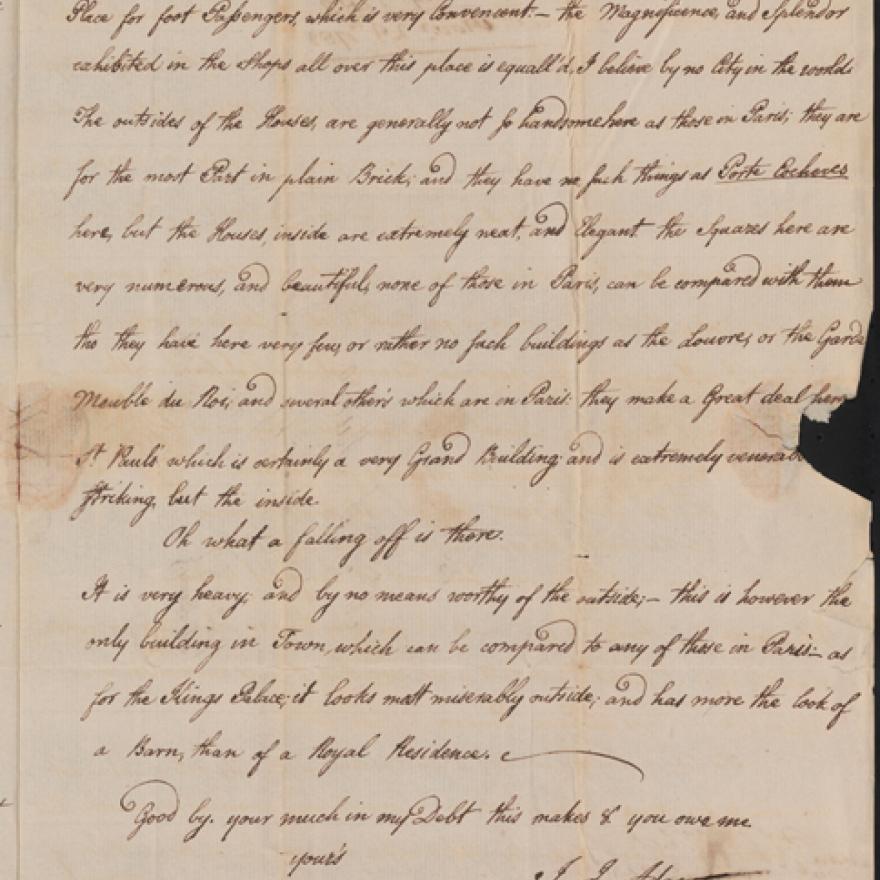 Place for foot Passengers, which is very Convenient:— the Magnificence, and Splendor
exhibited in the Shops all over this place is equall'd, I believe by no City in the world.
The outsides of the Houses, are generally not so handsome here as those in Paris; they are
for the most Part in plain Brick; and they have no such things as Porte Cocheres
here, but the Houses, inside are extremely neat, and Elegant. the Squares here are
very numerous, and beautiful, none of those in Paris, can be compared with them
tho they have here very few, or rather no such buildings as the Louvre, or the Garde
Meuble du Roi, and several others which are in Paris: they make a Great deal here
St. Paul's which is certainly a very Grand Building and is extremely venerab
striking, but the inside.
Oh what a falling off is there.
It is very heavy; and by no means worthy of the outside;— this is however the
only building in Town, which can be compared to any of those in Paris— as
for the Kings Palace; it looks most miserably outside; and has more the look of
a Barn, than of a Royal Residence.
Good by. your much in my Debt this makes 8 you owe me.
your's